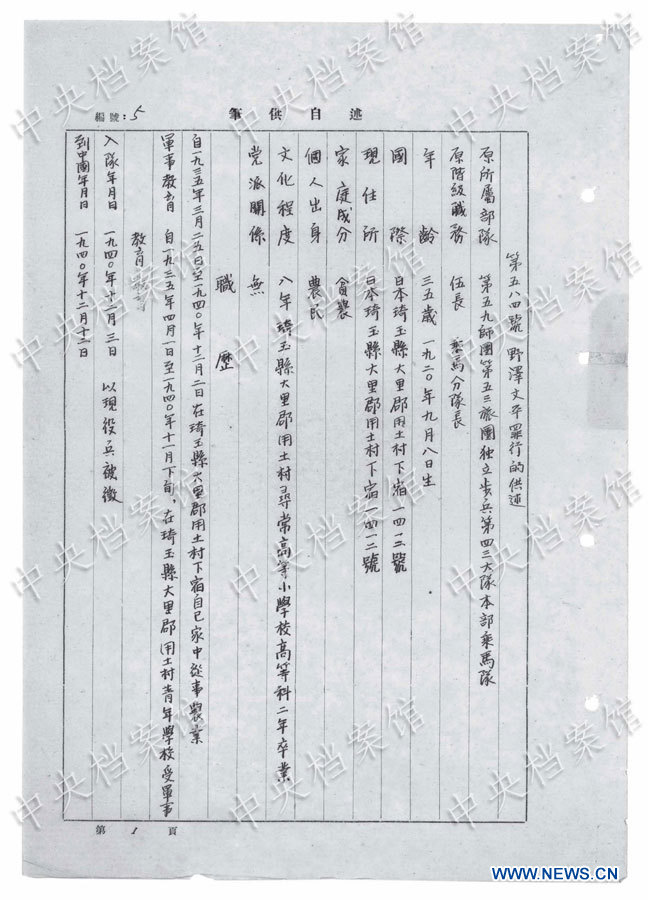 述自供筆
編號：5
第五八四號 野澤文平罪行的供述
原所屬部隊 第五九師團第五三旅團獨立步兵第四三大隊本部乘馬隊
原階級職務 伍長 乘馬分隊長
年齡 三五歲 一九二〇年九月八日生
國際 日本琦玉縣大里郡用土村下宿一四一二號
現住所 日本琦玉縣大里郡用土村下宿一四一二號
家庭成分 貧農
個人出身 農民
文化程度 八年琦玉縣大里郡用土村尋常高等小學校高等科二年卒業
党派關係 無
職歷
自一九三五年三月二五日至一九四〇年十二月二日在琦玉縣大里郡用土村下宿自己家中從事農業
軍事教育 自一九三五年四月一日至一九四〇年十一月下旬，在琦玉縣大里郡用土村青年學校受軍事
教育
入隊年月日 一九四〇年十二月三日 以現役兵被徵
到中國年月日 一九四〇年十二月十二日
第 1 頁
中央档案馆
WWW.NEWS.CN